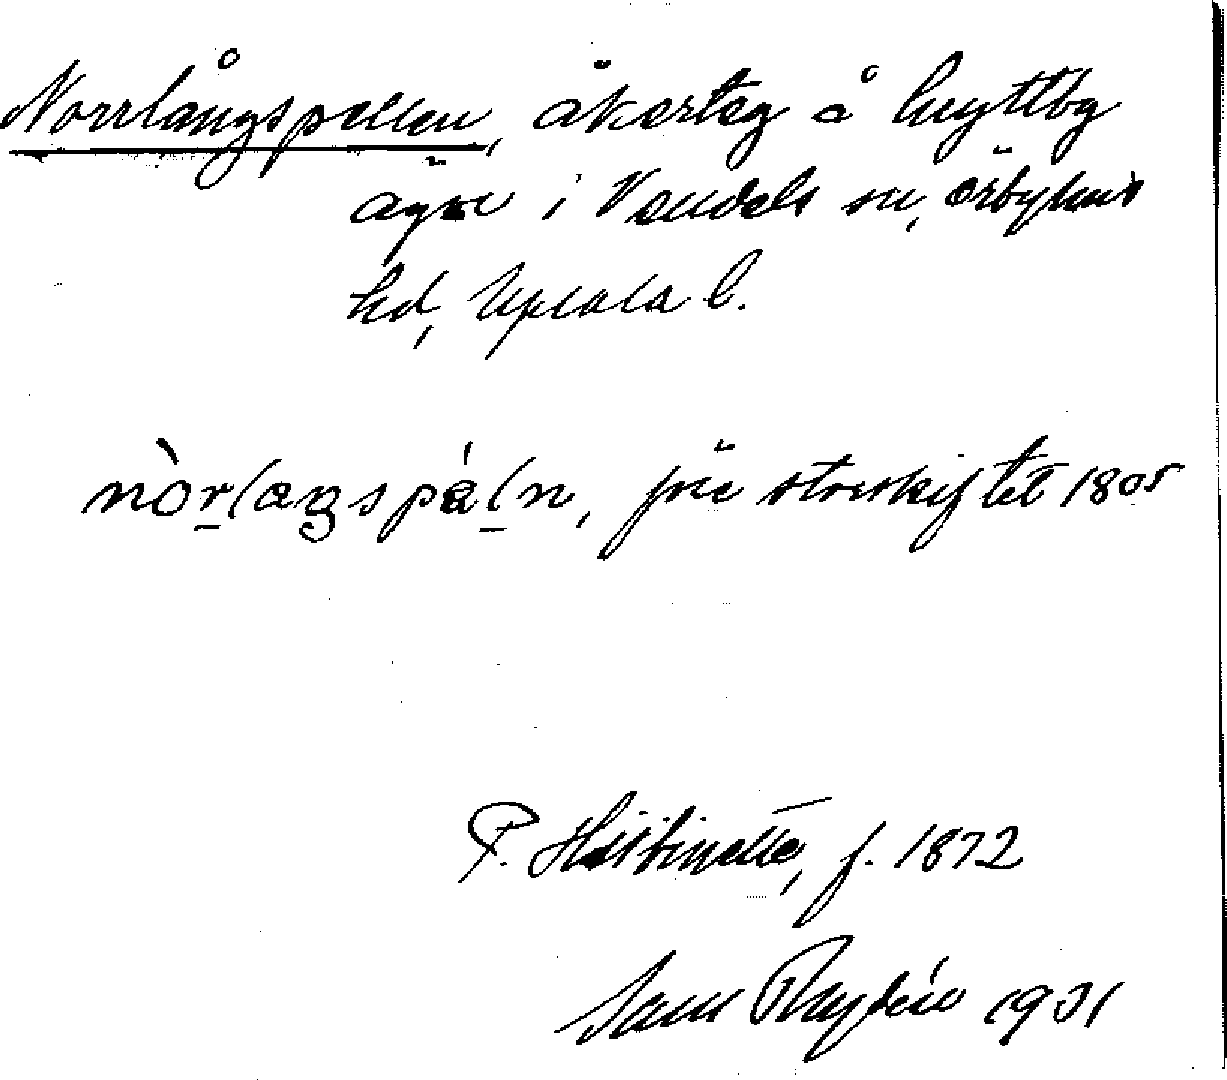 Norrlångspellen, åkerteg å Huyttby
ägor i Vendels sn, Örbyhus
hd, Upsala l.
nòrlaŋspáln, före storskiftet 1805
P. Hübinette, f. 1872
Sam Rhydén 1931